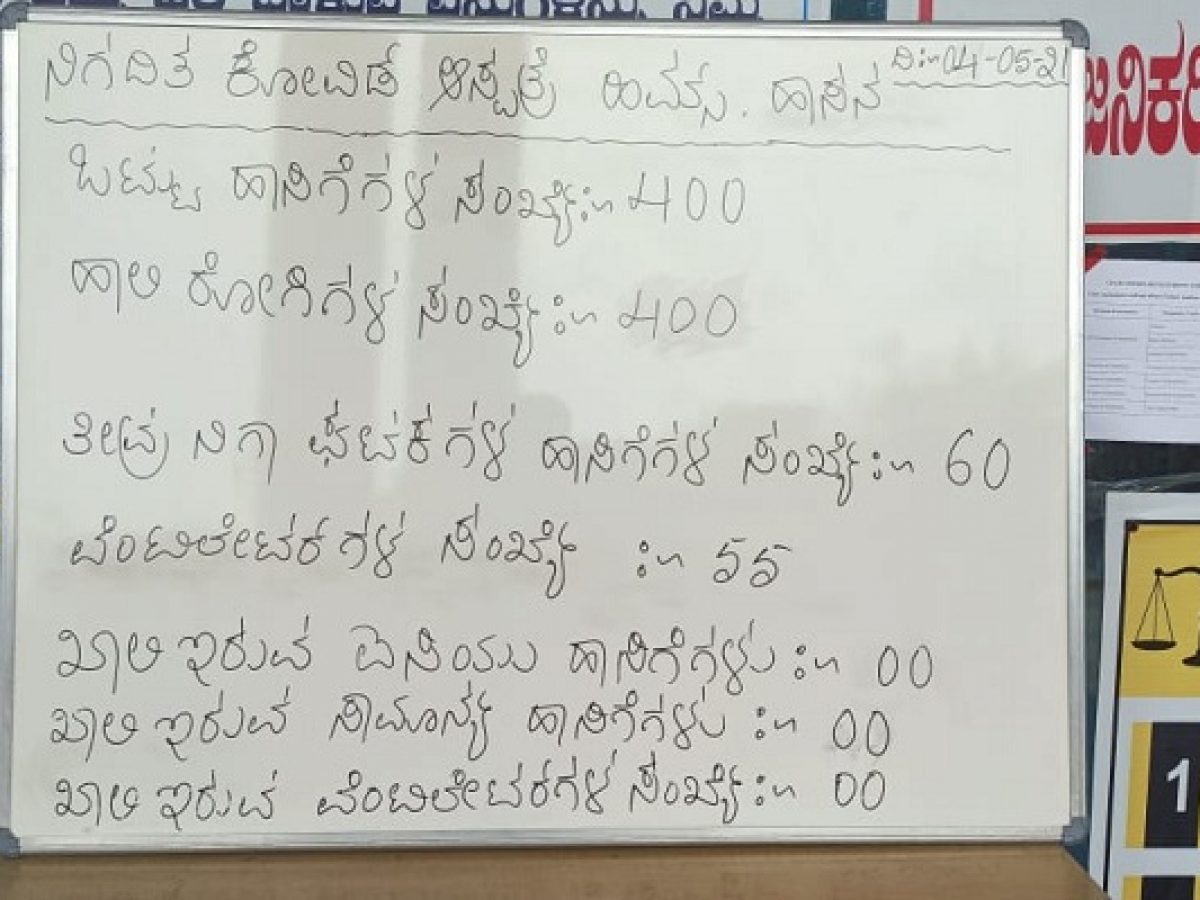 ನಿಗದಿತ ಕೋವಿಡ್ ಆಸ್ಪತ್ರೆ ಹಿಮ್ಸ್. ಹಾಸನ
ದಿ:-04-05-21
ಒಟ್ಟು ಹಾಸಿಗೆಗಳ ಸಂಖ್ಯೆ:- 400
ಹಾಲಿ ರೋಗಿಗಳ ಸಂಖ್ಯೆ:- 400
ತೀವ್ರ ನಿಗಾ ಘಟಕಗಳ ಹಾಸಿಗೆಗಳ ಸಂಖ್ಯೆ:- 60
ವೆಂಟಿಲೇಟರ್‌ಗಳ ಸಂಖ್ಯೆ :- 55
ಖಾಲಿ ಇರುವ ಐಸಿಯು ಹಾಸಿಗೆಗಳು :- 00
ಖಾಲಿ ಇರುವ ಸಾಮಾನ್ಯ ಹಾಸಿಗೆಗಳು :- 00
ಖಾಲಿ ಇರುವ ವೆಂಟಿಲೇಟರಗಳ ಸಂಖ್ಯೆ:- 00
1